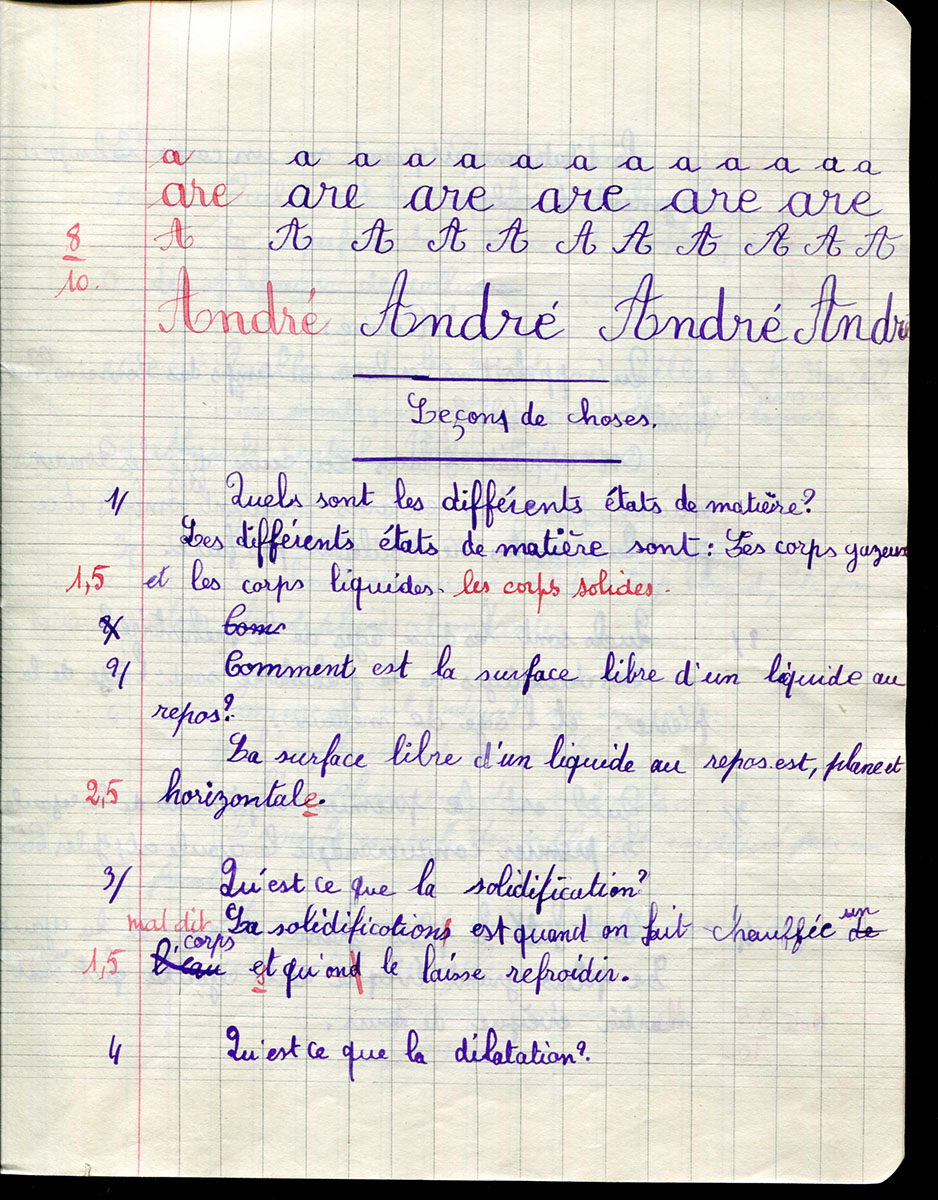 a a a a a a a a a a a a a
are are are are are are
8 A A A A A A A A A A A
10.
André André André André
Leçons de choses.
1/ Quels sont les différents états de matière?
Les différents états de matière sont : Les corps gazeux
1,5 et les corps liquides. les corps solides.
2 Com
2/ Comment est la surface libre d'un liquide au
repos?
La surface libre d'un liquide au repos.est, plane et
2,5 horizontale.
3/ Qu'est ce que la solidification?
mal dit La solidifications est quand on fait chauffée de un
1,5 l'eau corps et qu'ond le laisse refroidir.
4 Qu'est ce que la dilatation?